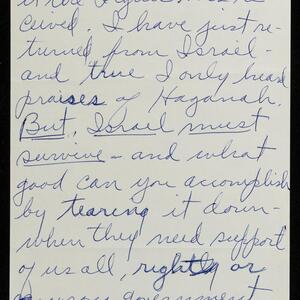 ceived. I have just re-
turned from Israel -
and true I only heard
praises of Haganah.
But, Israel must
survive - and what
good can you accomplish
by tearing it down -
when they need support
of us all, rightly or
government